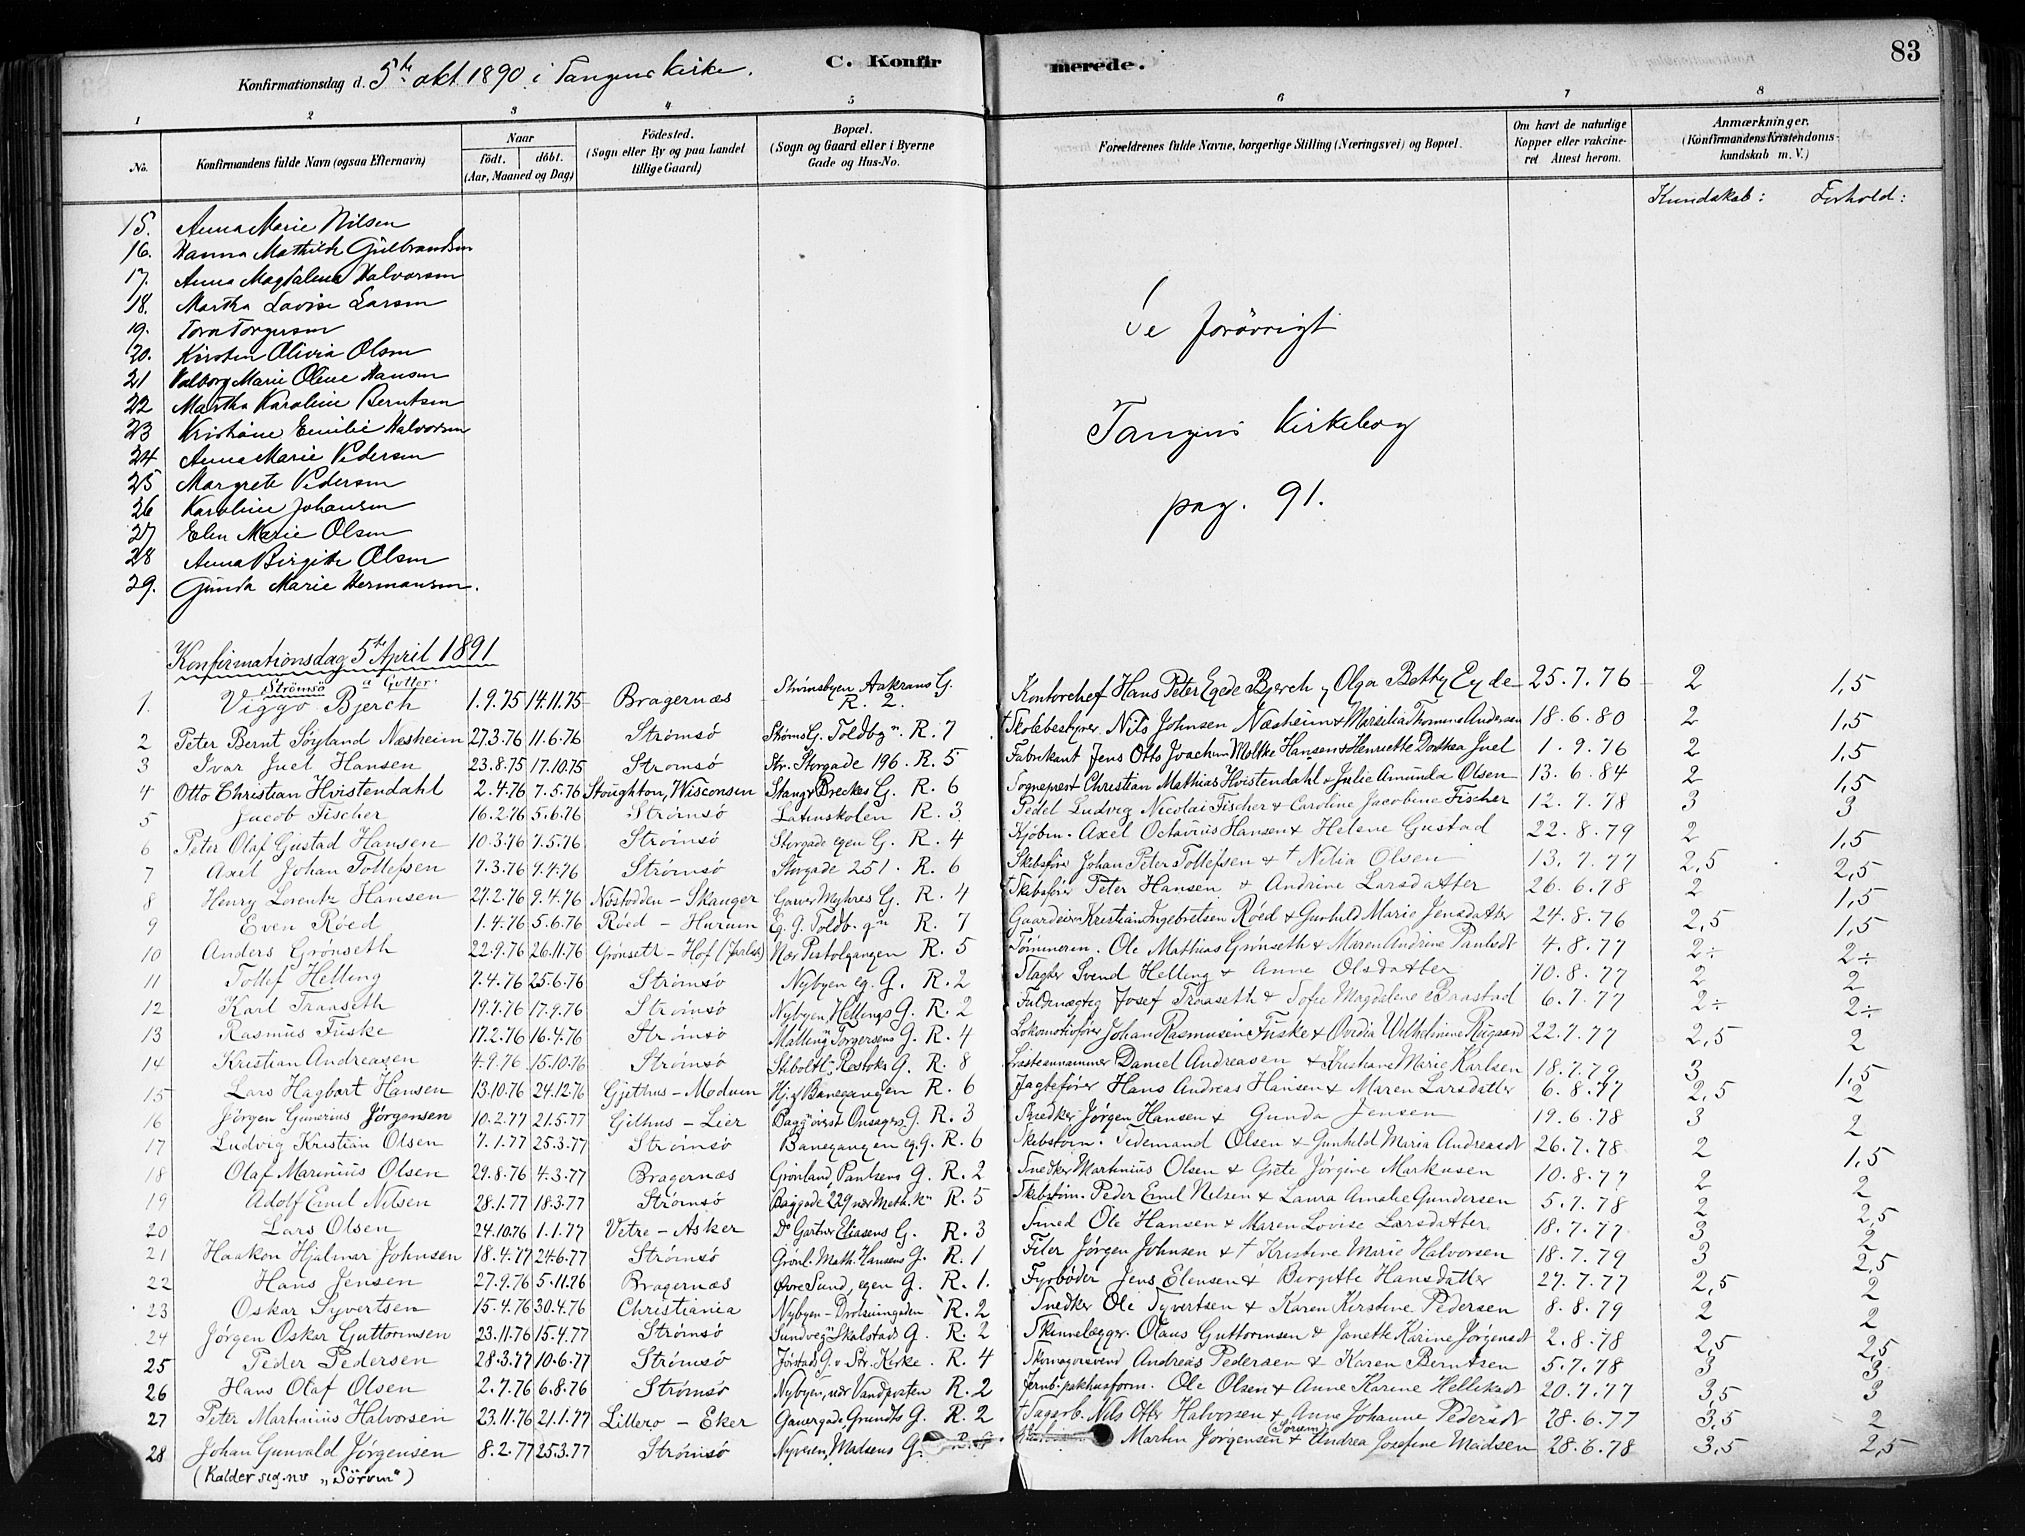 83
C. Konfirmerede.
Konfirmationsdag d. 5te okt. 1890 i Tangens Kirke.
1 2 3 4 5 6 7 8
No.
Konfirmandens fulde Navn (ogsaa Efternavn)
Naar
födt. döbt.
(Aar, Maaned og Dag)
Födested.
(Sogn eller By og paa Landet
tillige Gaard)
Bopæl.
(Sogn og Gaard eller i Byerne
Gade og Hus-No.
Forældrenes fulde Navne, borgerlige Stilling (Næringsvei) og Bopæl.
Om havt de naturlige
Kopper eller vakcine-
ret Attest herom.
Anmærkninger.
(Konfirmandens Kristendoms-
kundskab m. V.)
Kundskab: Forhold:
15. Anna Marie Nilsen
16. Hanna Mathilde Gulbrandsen
17. Anna Magdalena Halvorsen
18. Martha Lovise Larsen
19. Tora Torgersen
20. Kirsten Olivia Olsen
21 Valborg Marie Olene Hansen
22 Martha Karoline Berntsen
23 Kristiane Emilie Halvorsen
24 Anna Marie Pedersen
25 Margrete Pedersen
26 Karoline Johansen
27 Elen Marie Olsen
28 Anna Birgitte Olsen
29. Gunda Marie Hermansen.
Se forövrigt
Tangens Kirkebog
pag. 91.
Konfirmationsdag 5te April 1891
Strömsö a Gutter:
1. Viggo Bjerch 1.9.75 14.11.75 Bragernæs Strömsbyen Aakrans G. R. 2. Kontorchef Hans Peter Egede Bjerch & Olga Betty Eyde 25.7.76 2 1,5
2 Peter Bernt Söyland Næsheim 27.3.76 11.6.76 Strømsö Strøms G. Toldbgn. R. 7 † Skolebestyrer Nils Johnsen Næsheim & Marsilia Thomine Andersen 18.6.80 2 1,5
3 Ivar Juel Hansen 23.8.75 17.10.75 Strømsö Str. Storgade 196. R. 5 Fabrikant Jens Otto Joachim Moltke Hansen & Henriette Dorthea Juel 1.9.76 2 1,5
4 Otto Christian Hvistendahl 2.4.76 7.5.76 Stoughton, Wisconsin Stangv Breckes G. R. 6 Sogneprest Christian Mathias Hvistendahl & Julie Amunda Olsen 13.6.84 2 1,5
5 Jacob Fischer 16.2.76 5.6.76 Strømsö Latinskolen R. 3 Pedel Ludvig Nicolai Fischer & Caroline Jacobine Fischer 12.7.78 3 3
6 Peter Olaf Gustad Hansen 10.3.76 7.5.76 Strømsö Storgade egen G. R. 4 Kjöbm. Axel Octavius Hansen & Helene Gustad 22.8.79 2 1,5
7 Axel Johan Tollefsen 7.3.76 9.4.76 Strømsö Storgade 251. R. 6 Skibsfører Johan Peter Tollefsen & † Nilia Olsen 13.7.77 2,5 2,5
8 Henry Lorentz Hansen 27.2.76 9.4.76 Nöstodden - Skauger Garver Myhres G. R. 4 † Skibsfører Peter Hansen & Andrine Larsdatter 26.6.78 2 1,5
9 Even Röed 1.4.76 5.6.76 Röed - Hurum Eg. G. Toldb. gn R. 7 Gaardeier Kristian Ingebretsen Röed & Gunhild Marie Jensdatter 24.8.76 2,5 1,5
10 Anders Grönseth 22.9.76 26.11.76 Grønseth - Hof (Jarlsb) Nær Pistolgangen R. 5 Tømmerm. Ole Mathias Grønseth & Maren Andrine Paulsdt 4.8.77 2÷ 2÷
11 Tollef Helling 7.4.76 25.6.76 Strømsö Nybyen eg. G. R. 2 Slagter Svend Helling & Anne Olsdatter 10.8.77 2 2
12 Karl Transeth 19.7.76 17.9.76 Strømsö Nybyen, Hellings G. R. 2 Fuldmægtig Josef Transeth & Sofie Magdalene Baastad 6.7.77 2÷ 2÷
13 Rasmus Fuske 17.2.76 16.4.76 Strømsö Mælleng Torgersens G. R. 4 Lokomotivfører Johan Rasmusen Fuske & Ovedia Wilhelmine Rugaard 22.7.77 2,5 2
14 Kristian Andreasen 4.9.76 15.10.76 Strømsö Stiboltg Rostoks G. R. 8 Daniel Andreasen & Kristiane Marie Karlsen 18.7.79 3 1,5
15 Lars Hagbart Hansen 13.10.76 24.12.76 Gjethus - Modum Hj. af Banegangen R. 6 Jagtefører Hans Andreas Hansen & Maren Larsdatter 6.8.77 2,5 2
16 Jørgen Gunerius Jørgensen 10.2.77 21.5.77 Gilhus - Lier Bagg øverst Onsagers G. R. 3 Snedker Jørgen Hansen & Gunda Jensen 19.6.78 3 2
17 Ludvig Kristian Olsen 7.1.77 25.3.77 Strømsö Banegangen eg. G. R. 6 Skibstøm. Tidemand Olsen & Gunhild Maria Andreasdt 26.7.78 2 1,5
18 Olaf Marinius Olsen 29.8.76 4.3.77 Bragernæs Grønland, Paulsens G. R. 2 Snedker Martinius Olsen & Grete Jørgine Markusen 10.8.77 2 2
19 Adolf Emil Nilsen 28.1.77 18.3.77 Strømsö Baggade 229 nær Meth.kn R. 5 Skibstøm. Peder Emil Nilsen & Laura Amalie Gundersen 5.7.78 2 2,5
20 Lars Olsen 24.10.76 1.1.77 Vetre - Asker Do Gartner Eliasens G. R. 3 Smed Ole Hansen & Maren Lovise Larsdatter 18.7.77 3 2
21 Haakon Hjalmar Johnsen 18.4.77 24.6.77 Strømsö Grønl. Math. Hansens G. R. 1 Filer Jørgen Johnsen & † Kristine Marie Halvorsen 18.7.79 3 2,5
22 Hans Jensen 27.9.76 5.11.76 Bragernæs Øvre Sund, egen G. R. 1. Fyrbøder Jens Elensen & Birgitte Hansdatter 27.7.77 2,5 2
23 Oskar Syvertsen 15.4.76 30.4.76 Christiania Nybyen - Drotningaden R. 2 Snedker Ole Syvertsen & Karen Kirstine Pedersen 8.8.79 2 2
24 Jørgen Oskar Guttormsen 23.11.76 15.4.77 Strømsö Sundvegn Skalstads G. R. 2 Skinnelægger. Olaus Guttormsen & Janette Karine Jørgensdt 2.8.78 2,5 2,5
25 Peder Pedersen 28.3.77 10.6.77 Strømsö Jørstads G. v Str. Kirke. R. 4 Skomagersvend Andreas Pedersen & Karen Berntsen 5.7.78 3 3
26 Hans Olaf Olsen 2.7.76 6.8.76 Strømsö Nybyen, nær Vandposten R. 2 Jernb. pakhusform. Ole Olsen & Anne Karine Helliksdt 20.7.77 3,5 3
27 Peter Martinius Halvorsen 23.11.76 21.1.77 Lillero - Eker Gauergade Grundts G. R. 2 † Sagarb. Nils Otter Halvorsen & Anne Johanne Pedersdt 28.6.77 3,5 2
28 Johan Gunvald Jørgensen 8.2.77 25.3.77 Strømsö Nyveien, Madsens G. Martin Jørgensen (Sörsen) & Andrea Josefine Madsen 28.6.78 3,5 2,5
(Kalder sig nu „Sörum")